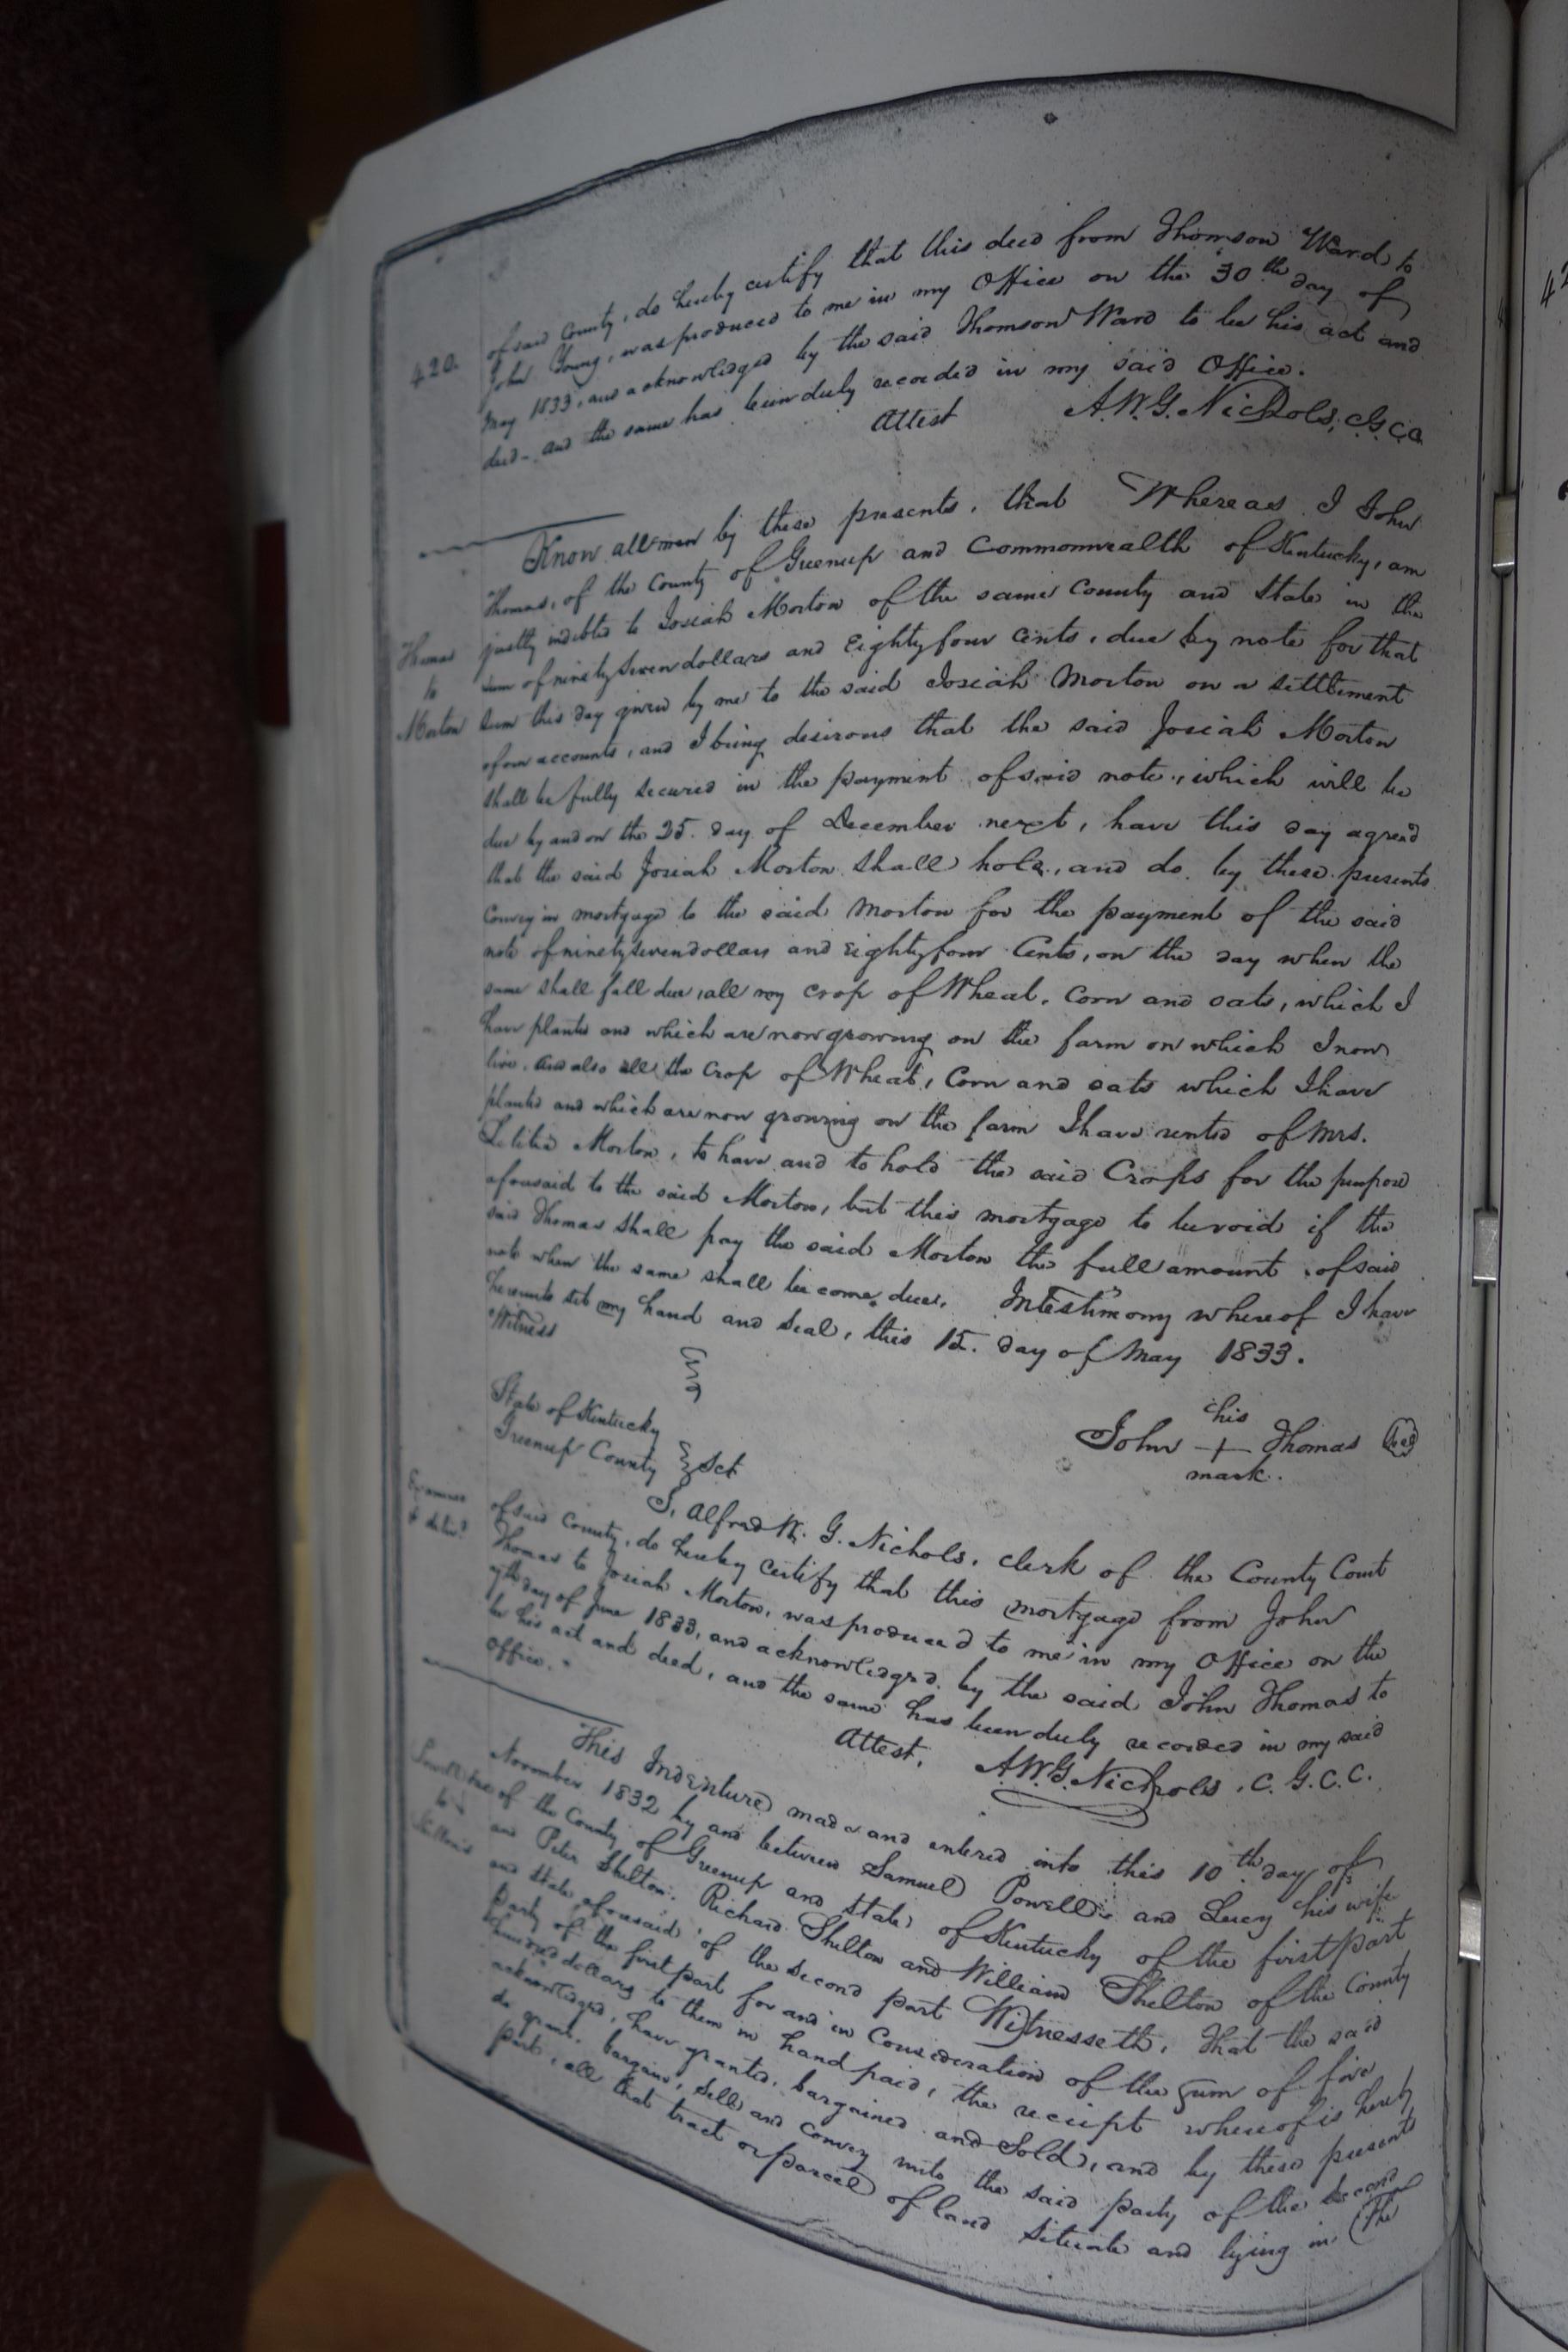 420.
of said County, do hereby certify that this deed from Thomson Ward to
John Young, was produced to me in my Office on the 30th day of
May 1833, and acknowledged by the said Thomson Ward to be his act and
deed - and the same has been duly recorded in my said Office.
Attest A. W. G. Nichols, C. G. C. C.
Know all men by these presents, that Whereas I John
Thomas, of the County of Greenup and Commonwealth of Kentucky, am
justly indebted to Josiah Morton of the same County and State in the
sum of ninety seven dollars and Eighty four cents, due by note for that
sum this day given by me to the said Josiah Morton on a settlement
of our accounts, and I being desirous that the said Josiah Morton
shall be fully secured in the payment of said note, which will be
due by and on the 25. day of December next, have this day agreed
that the said Josiah Morton shall hold, and do by these presents
Convey in mortgage to the said Morton for the payment of the said
note of ninety seven dollars and Eighty four Cents, on the day when the
same shall fall due, all my crop of Wheat, Corn and oats, which I
have planted and which are now growing on the farm on which I now
live. And also all the crop of Wheat, Corn and oats which I have
planted and which are now growing on the farm I have rented of Mrs.
Letitia Morton, to have and to hold the said Crops for the purpose
aforesaid to the said Morton, but this mortgage to be void if the
said Thomas shall pay the said Morton the full amount of said
note when the same shall become due. In Testimony whereof I have
hereunto set my hand and seal, this 15. day of May 1833.
Witness
Thomas
to
Morton
his
John + Thomas Seal
mark.
State of Kentucky
Greenup County Sct
Examined
& deliv.d
I, Alfred W. G. Nichols, clerk of the County Court
of said County, do hereby certify that this mortgage from John
Thomas to Josiah Morton, was produced to me in my Office on the
day of June 1833, and acknowledged by the said John Thomas to
be his act and deed, and the same has been duly recorded in my said
Office.
Attest, A. W. G. Nichols, C. G. C. C.
This Indenture made and entered into this 10th day of
November 1832 by and between Samuel Powell and Lucy his wife
of the County of Greenup and State of Kentucky of the first part
and Peter Shelton, Richard Shelton and William Shelton of the County
and State aforesaid, of the second part Witnesseth, That the said
party of the first part for and in Consideration of the sum of five
hundred dollars to them in hand paid, the receipt whereof is hereby
acknowledged, have granted, bargained and Sold, and by these presents
do grant, bargain, sell and convey unto the said party of the second
part, all that tract or parcel of land situate and lying in (the
to
Shelton's